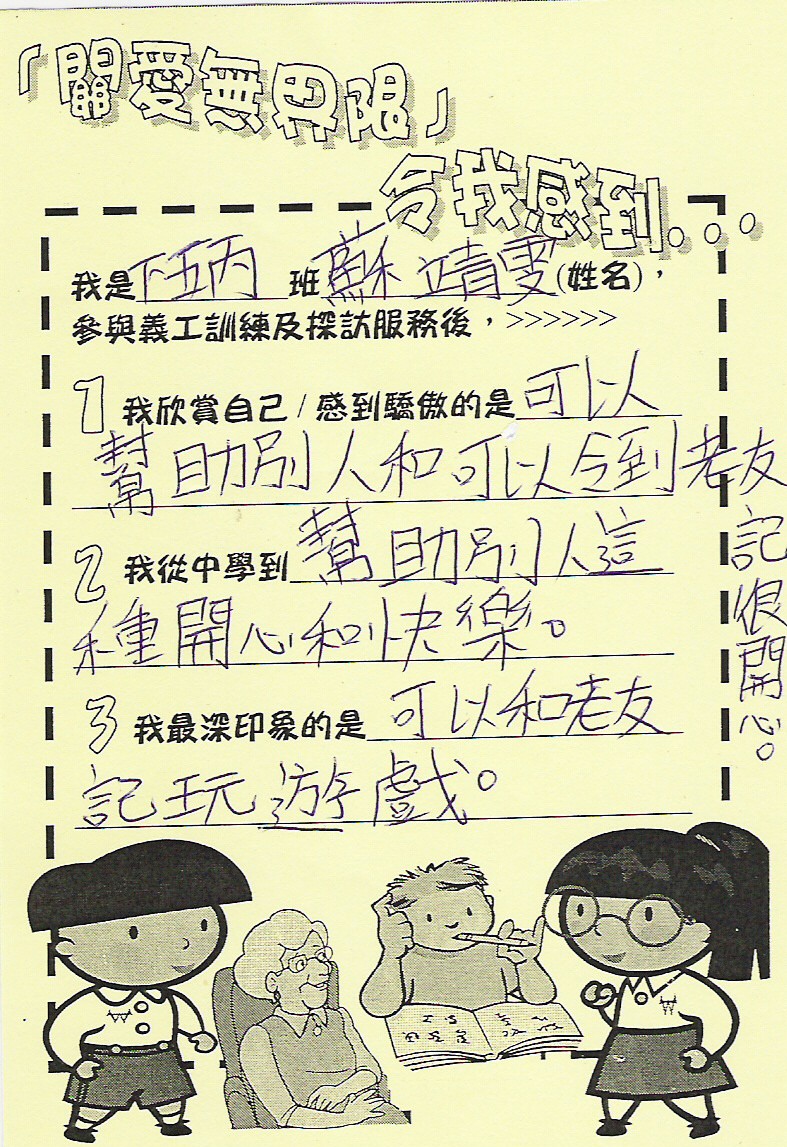 「關愛無界限」
令我感到...
我是下五丙班蘇靖雯(姓名),
參與義工訓練及探訪服務後,>>>>>>
1 我欣賞自己/感到驕傲的是可以
幫助別人和可以令到老友
記很開心。
2 我從中學到幫助別人這
種開心和快樂。
3 我最深印象的是可以和老友
記玩遊戲。